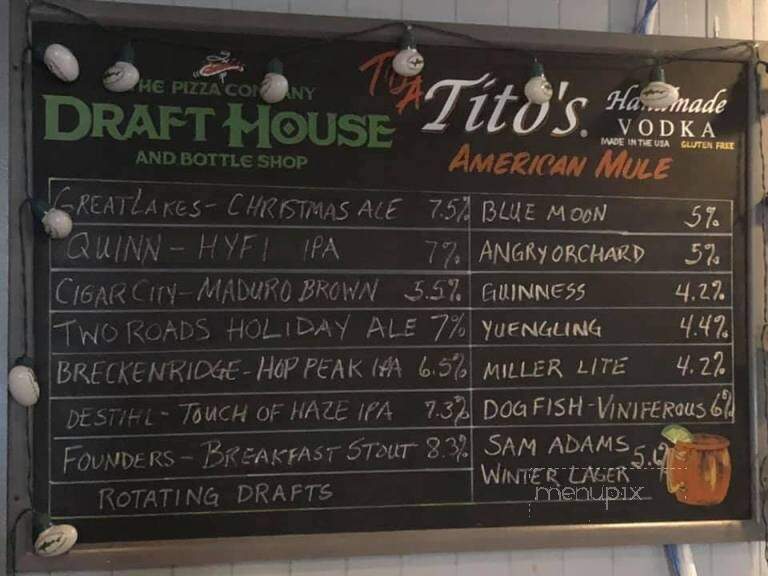 THE PIZZA COMPANY
DRAFT HOUSE
AND BOTTLE SHOP
Tito's Handmade
VODKA
MADE IN THE USA GLUTEN FREE
AMERICAN MULE
GREAT LAKES - CHRISTMAS ALE 7.5%
QUINN - HYFI IPA 7%
CIGAR CITY - MADURO BROWN 5.5%
TWO ROADS HOLIDAY ALE 7%
BRECKENRIDGE - HOP PEAK IPA 6.5%
DESTIHL - TOUCH OF HAZE IPA 7.3%
FOUNDERS - BREAKFAST STOUT 8.3%
ROTATING DRAFTS
BLUE MOON 5%
ANGRY ORCHARD 5%
GUINNESS 4.2%
YUENGLING 4.4%
MILLER LITE 4.2%
DOGFISH - VINIFEROUS 6%
SAM ADAMS
WINTER LAGER
menupix